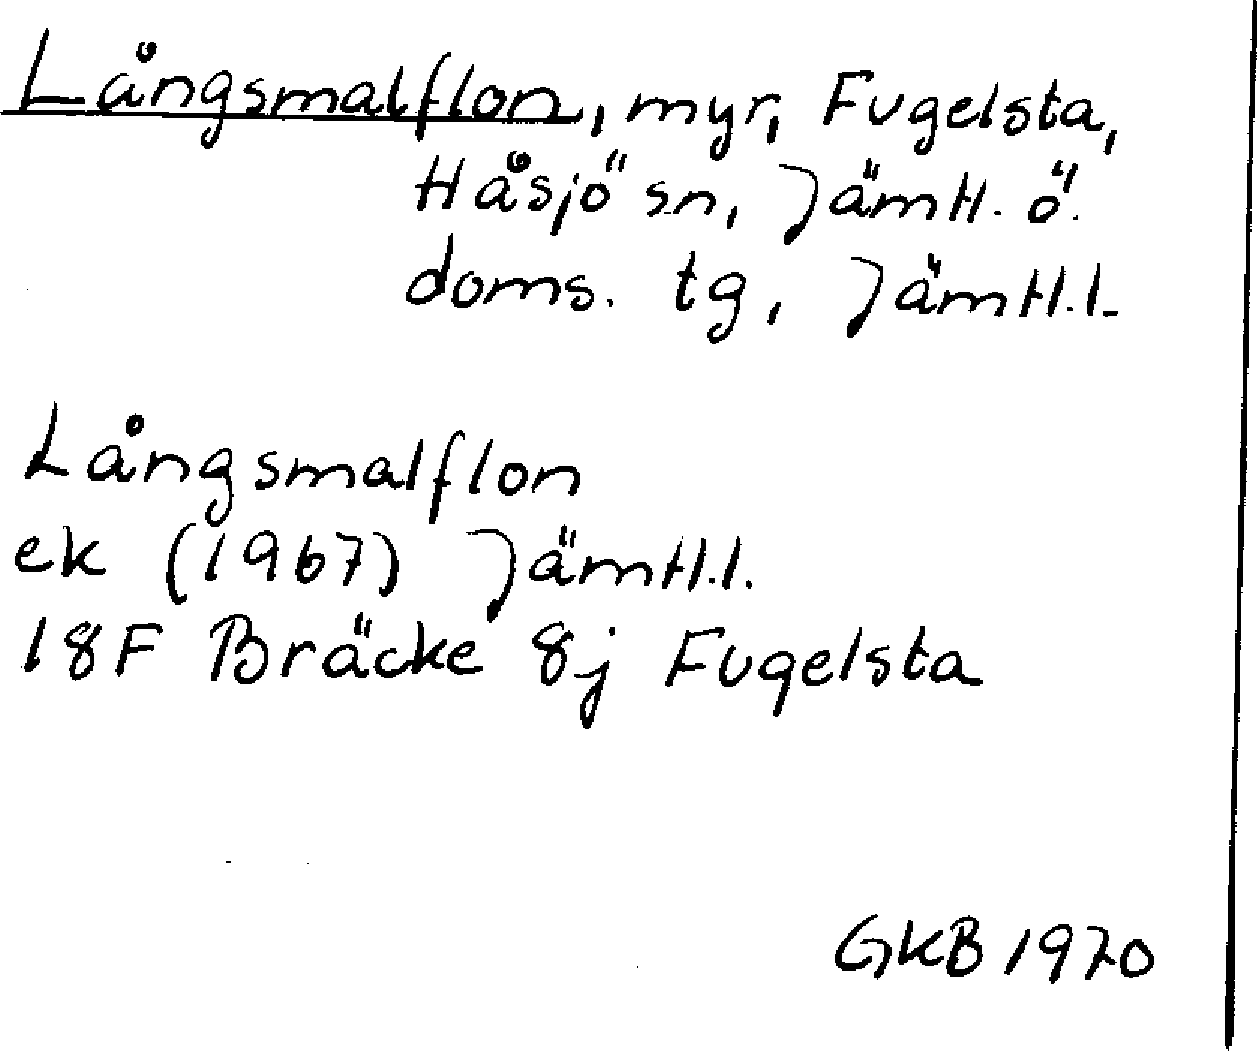 Långsmalflon, myr, Fugelsta,
Håsjö sn, Jämtl. ö.
doms. tg, Jämtl.l.
Långsmalflon
ek (1967) Jämtl.l.
18F Bräcke 8j Fugelsta
GKB 1970